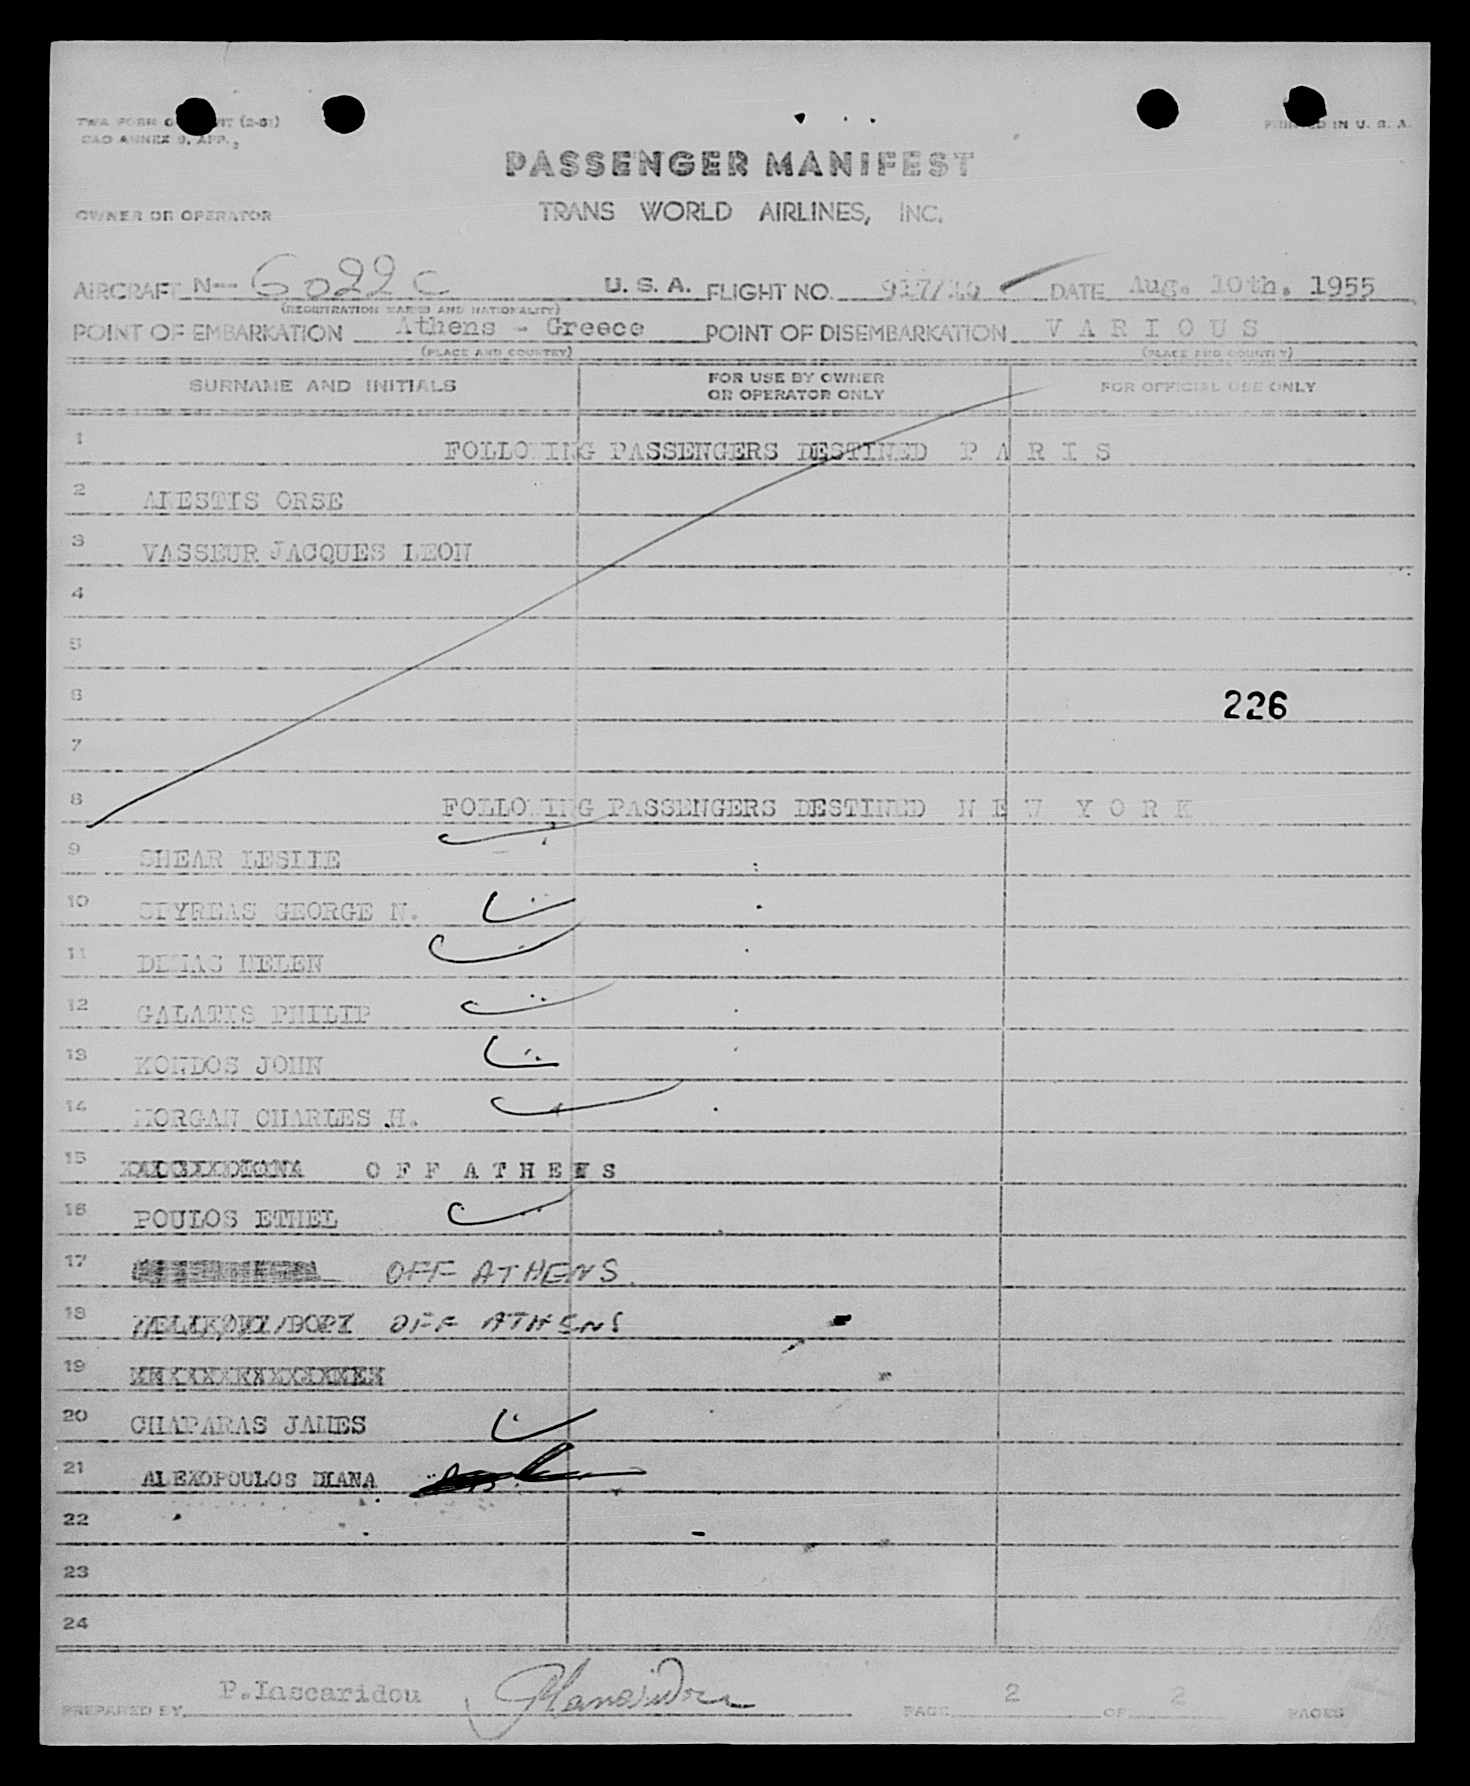 TWA FORM
ICAO ANNEX 9, APP.
PRINTED IN U. S. A.
PASSENGER MANIFEST
OWNER OR OPERATOR TRANS WORLD AIRLINES, INC.
AIRCRAFT N-- 6022 C U. S. A. FLIGHT NO. 917/10 DATE Aug. 10th. 1955
(REGISTRATION MARKS AND NATIONALITY)
POINT OF EMBARKATION Athens - Greece POINT OF DISEMBARKATION V A R I O U S
(PLACE AND COUNTRY) (PLACE AND COUNTRY)
SURNAME AND INITIALS FOR USE BY OWNER OR OPERATOR ONLY FOR OFFICIAL USE ONLY
1 FOLLOWING PASSENGERS DESTINED P A R I S
2 ALESTIS ORSE
3 VASSEUR JACQUES LEON
4
5
6 226
7
8 FOLLOWING PASSENGERS DESTINED N E W Y O R K
9 SHEAR LESLIE
10 SPYREAS GEORGE N.
11 HELEN
12 GALATIS PHILIP
13 KONDOS JOHN
14 MORGAN CHARLES H.
15 O F F A T H E N S
16 POULOS ETHEL
17 OFF ATHENS
18 OFF ATHENS
19
20 CHAPARAS JAMES
21 ALEXOPOULOS DIANA
22
23
24
PREPARED BY P.Lascaridou PAGE 2 OF 2 PAGES